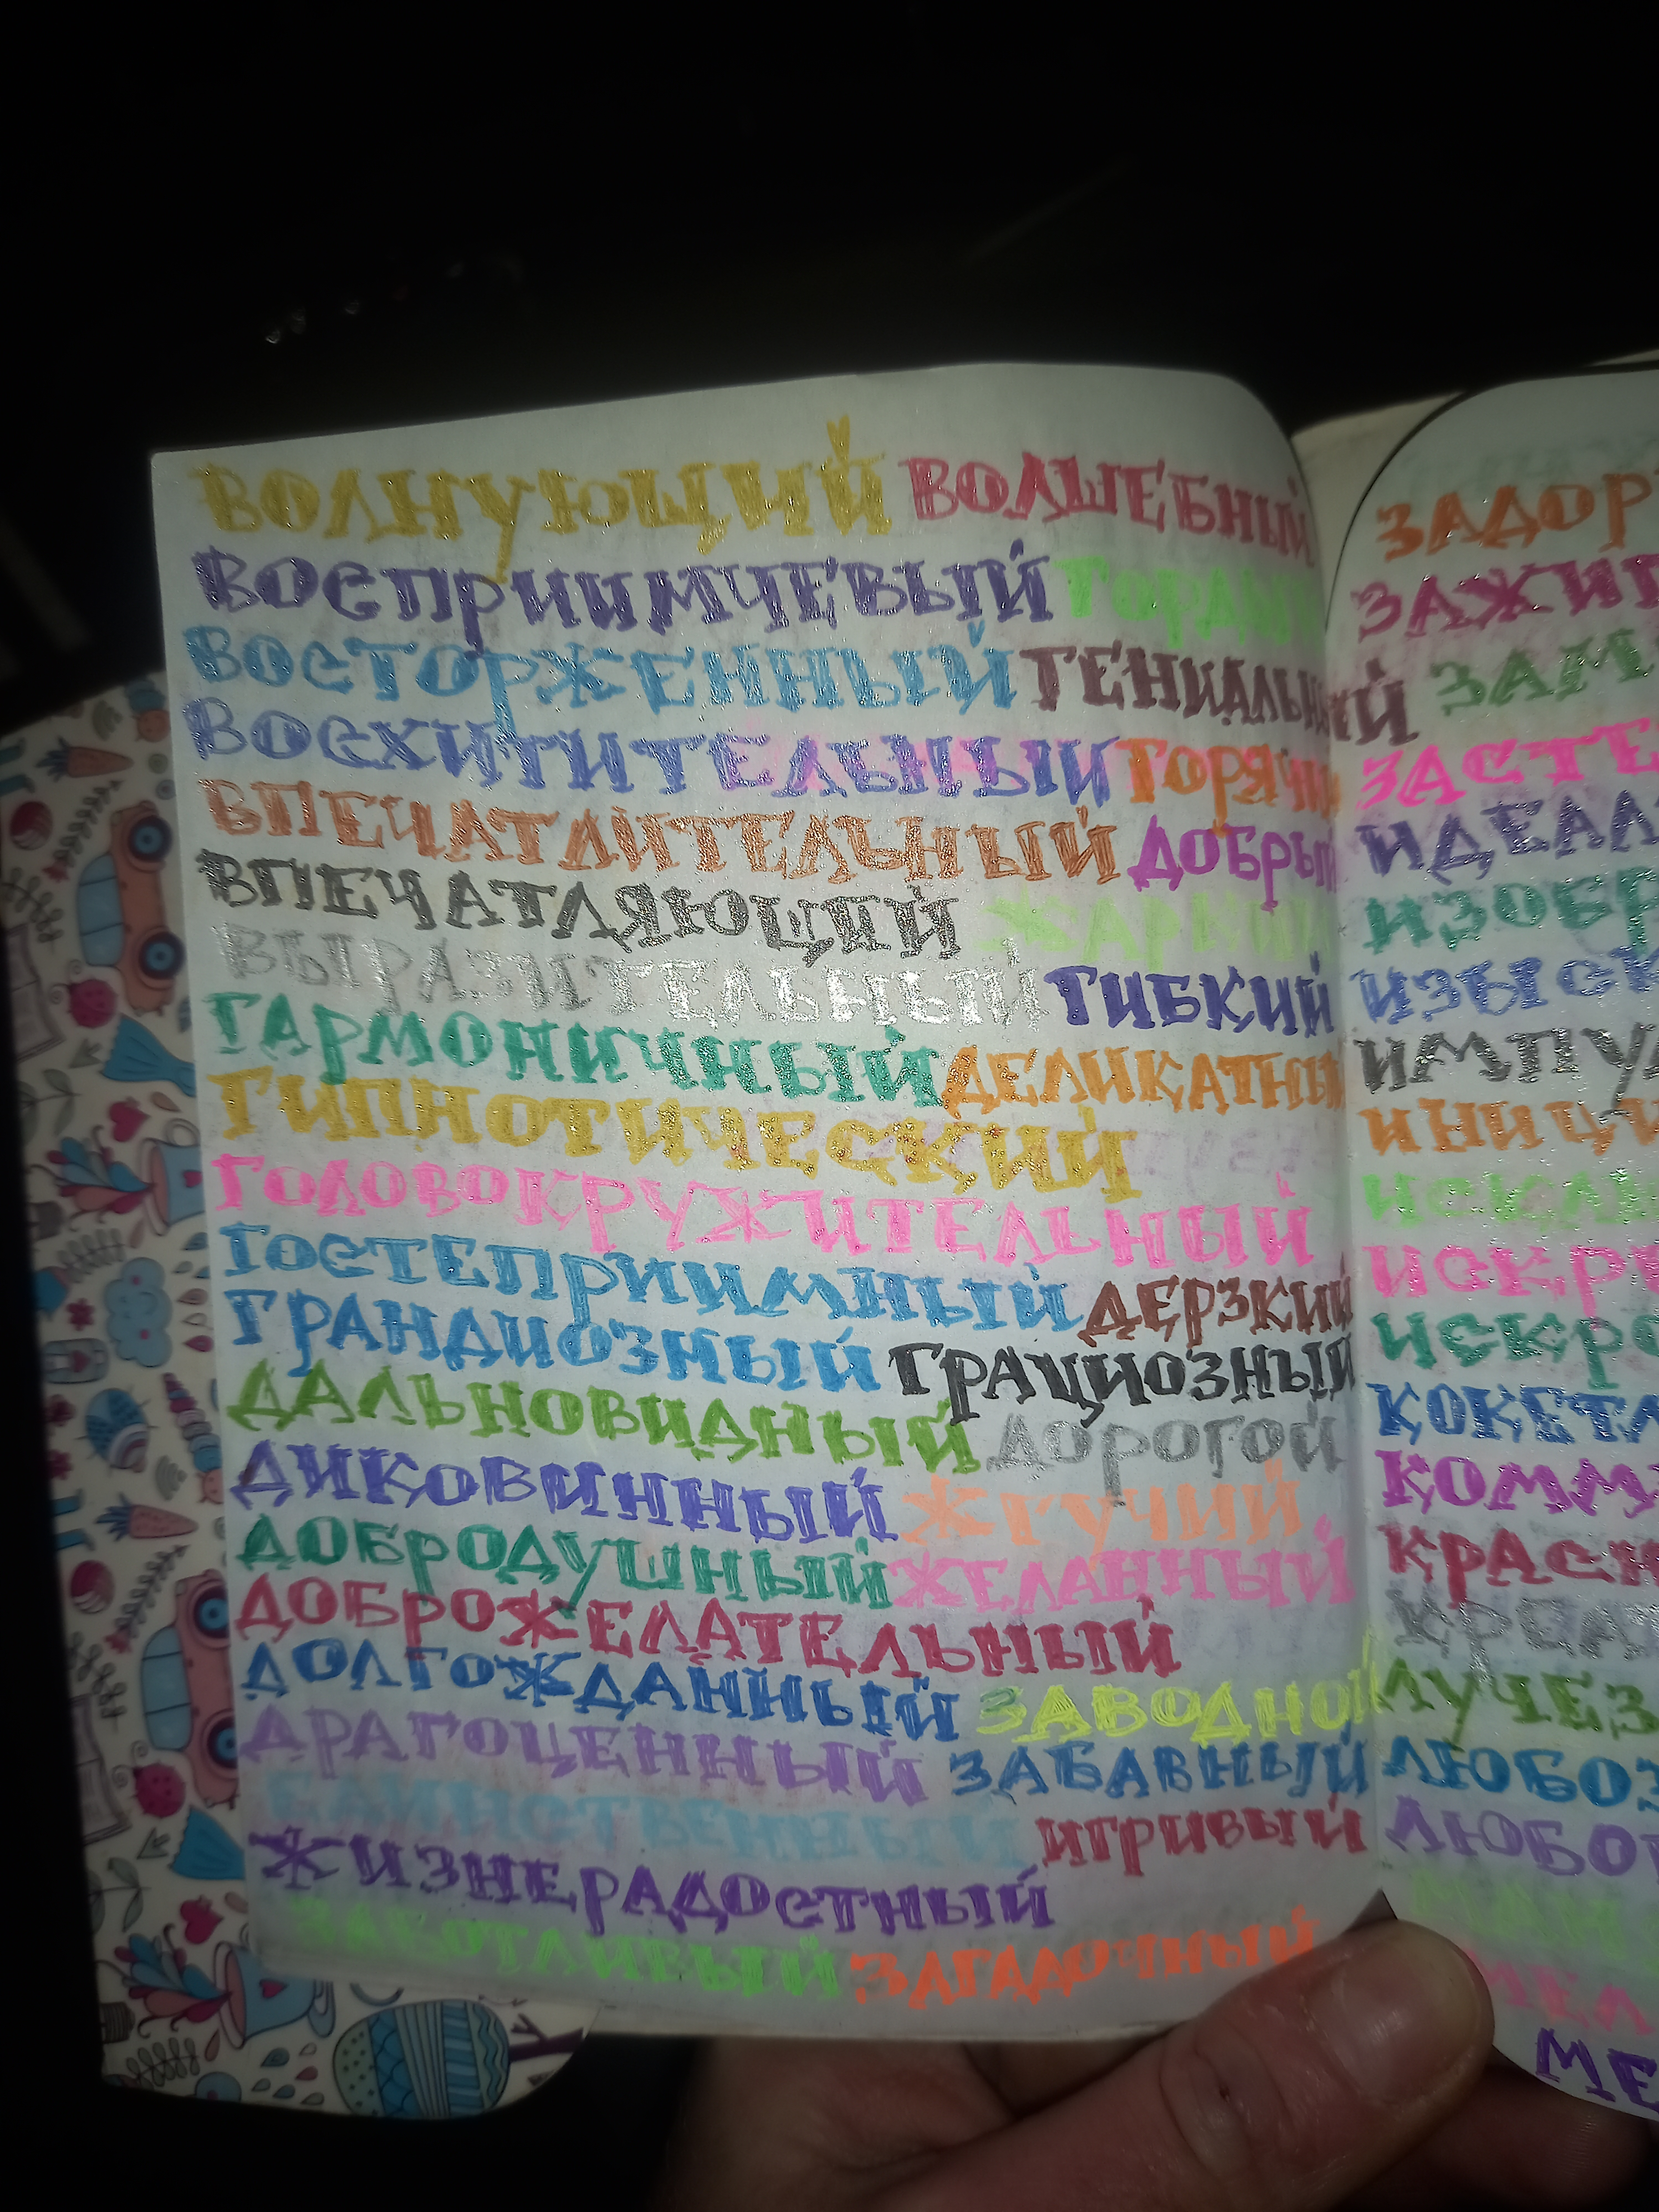 ВОЛНУЮЩИЙ ВОЛШЕБНЫЙ
ВОСПРИИМЧЕВЫЙ ГОРДЫ
ВОСТОРЖЕННЫЙ ГЕНИАЛЬНЫЙ
ВОСХИТИТЕЛЬНЫЙ ГОРЯЧИ
ВПЕЧАТЛИТЕЛЬНЫЙ ДОБРЫ
ВПЕЧАТЛЯЮЩИЙ ЖАРКИ
ВЫРАЗИТЕЛЬНЫЙ ГИБКИЙ
ГАРМОНИЧНЫЙ ДЕЛИКАТНЫ
ГИПНОТИЧЕСКИЙ
ГОЛОВОКРУЖИТЕЛЬНЫЙ
ГОСТЕПРИИМНЫЙ ДЕРЗКИЙ
ГРАНДИОЗНЫЙ ГРАЦИОЗНЫЙ
ДАЛЬНОВИДНЫЙ ДОРОГОЙ
ДИКОВИННЫЙ ЖГУЧИЙ
ДОБРОДУШНЫЙ ЖЕЛАННЫЙ
ДОБРОЖЕЛАТЕЛЬНЫЙ
ДОЛГОЖДАННЫЙ ЗАВОДНОЙ
ДРАГОЦЕННЫЙ ЗАБАВНЫЙ
ЕДИНСТВЕННЫЙ ИГРИВЫЙ
ЖИЗНЕРАДОСТНЫЙ
ЗАБОТЛИВЫЙ ЗАГАДОЧНЫЙ
ЗАДОР
ЗАЖИГ
ЗАМ
ЗАСТЕ
ИДЕАЛ
ИЗОБР
ИЗЫСК
ИМПУЛ
ИНИЦИ
ИСКЛЮ
ИСКРЕ
ИСКРО
КОКЕТЛ
КОММУ
КРАСН
КРЕАТ
ЛУЧЕЗ
ЛЮБОЗ
ЛЮБОП
МЕЛ
МЕ